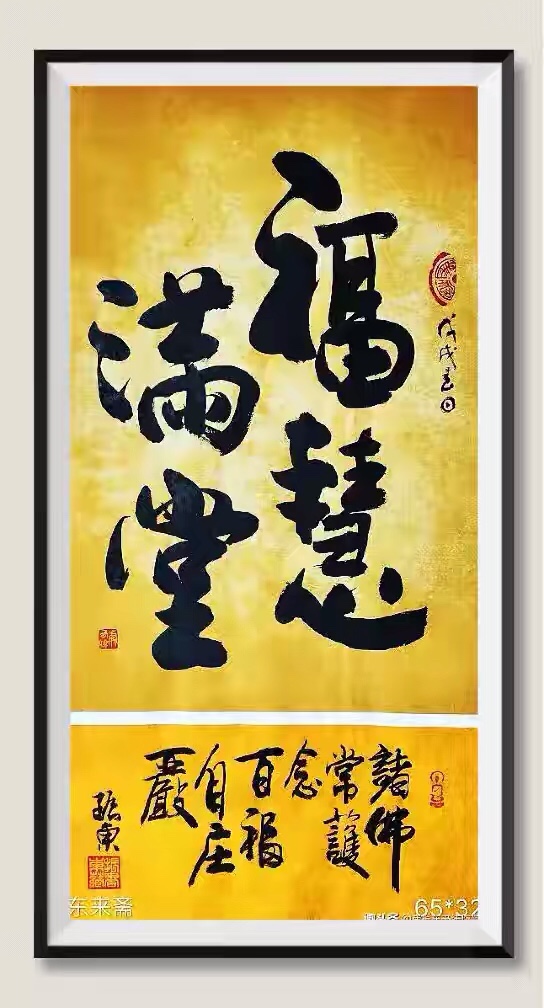 福慧
满堂
戊戌春日
諸佛
常護
念
百福
自庄
嚴
振東
东来斋
65*32